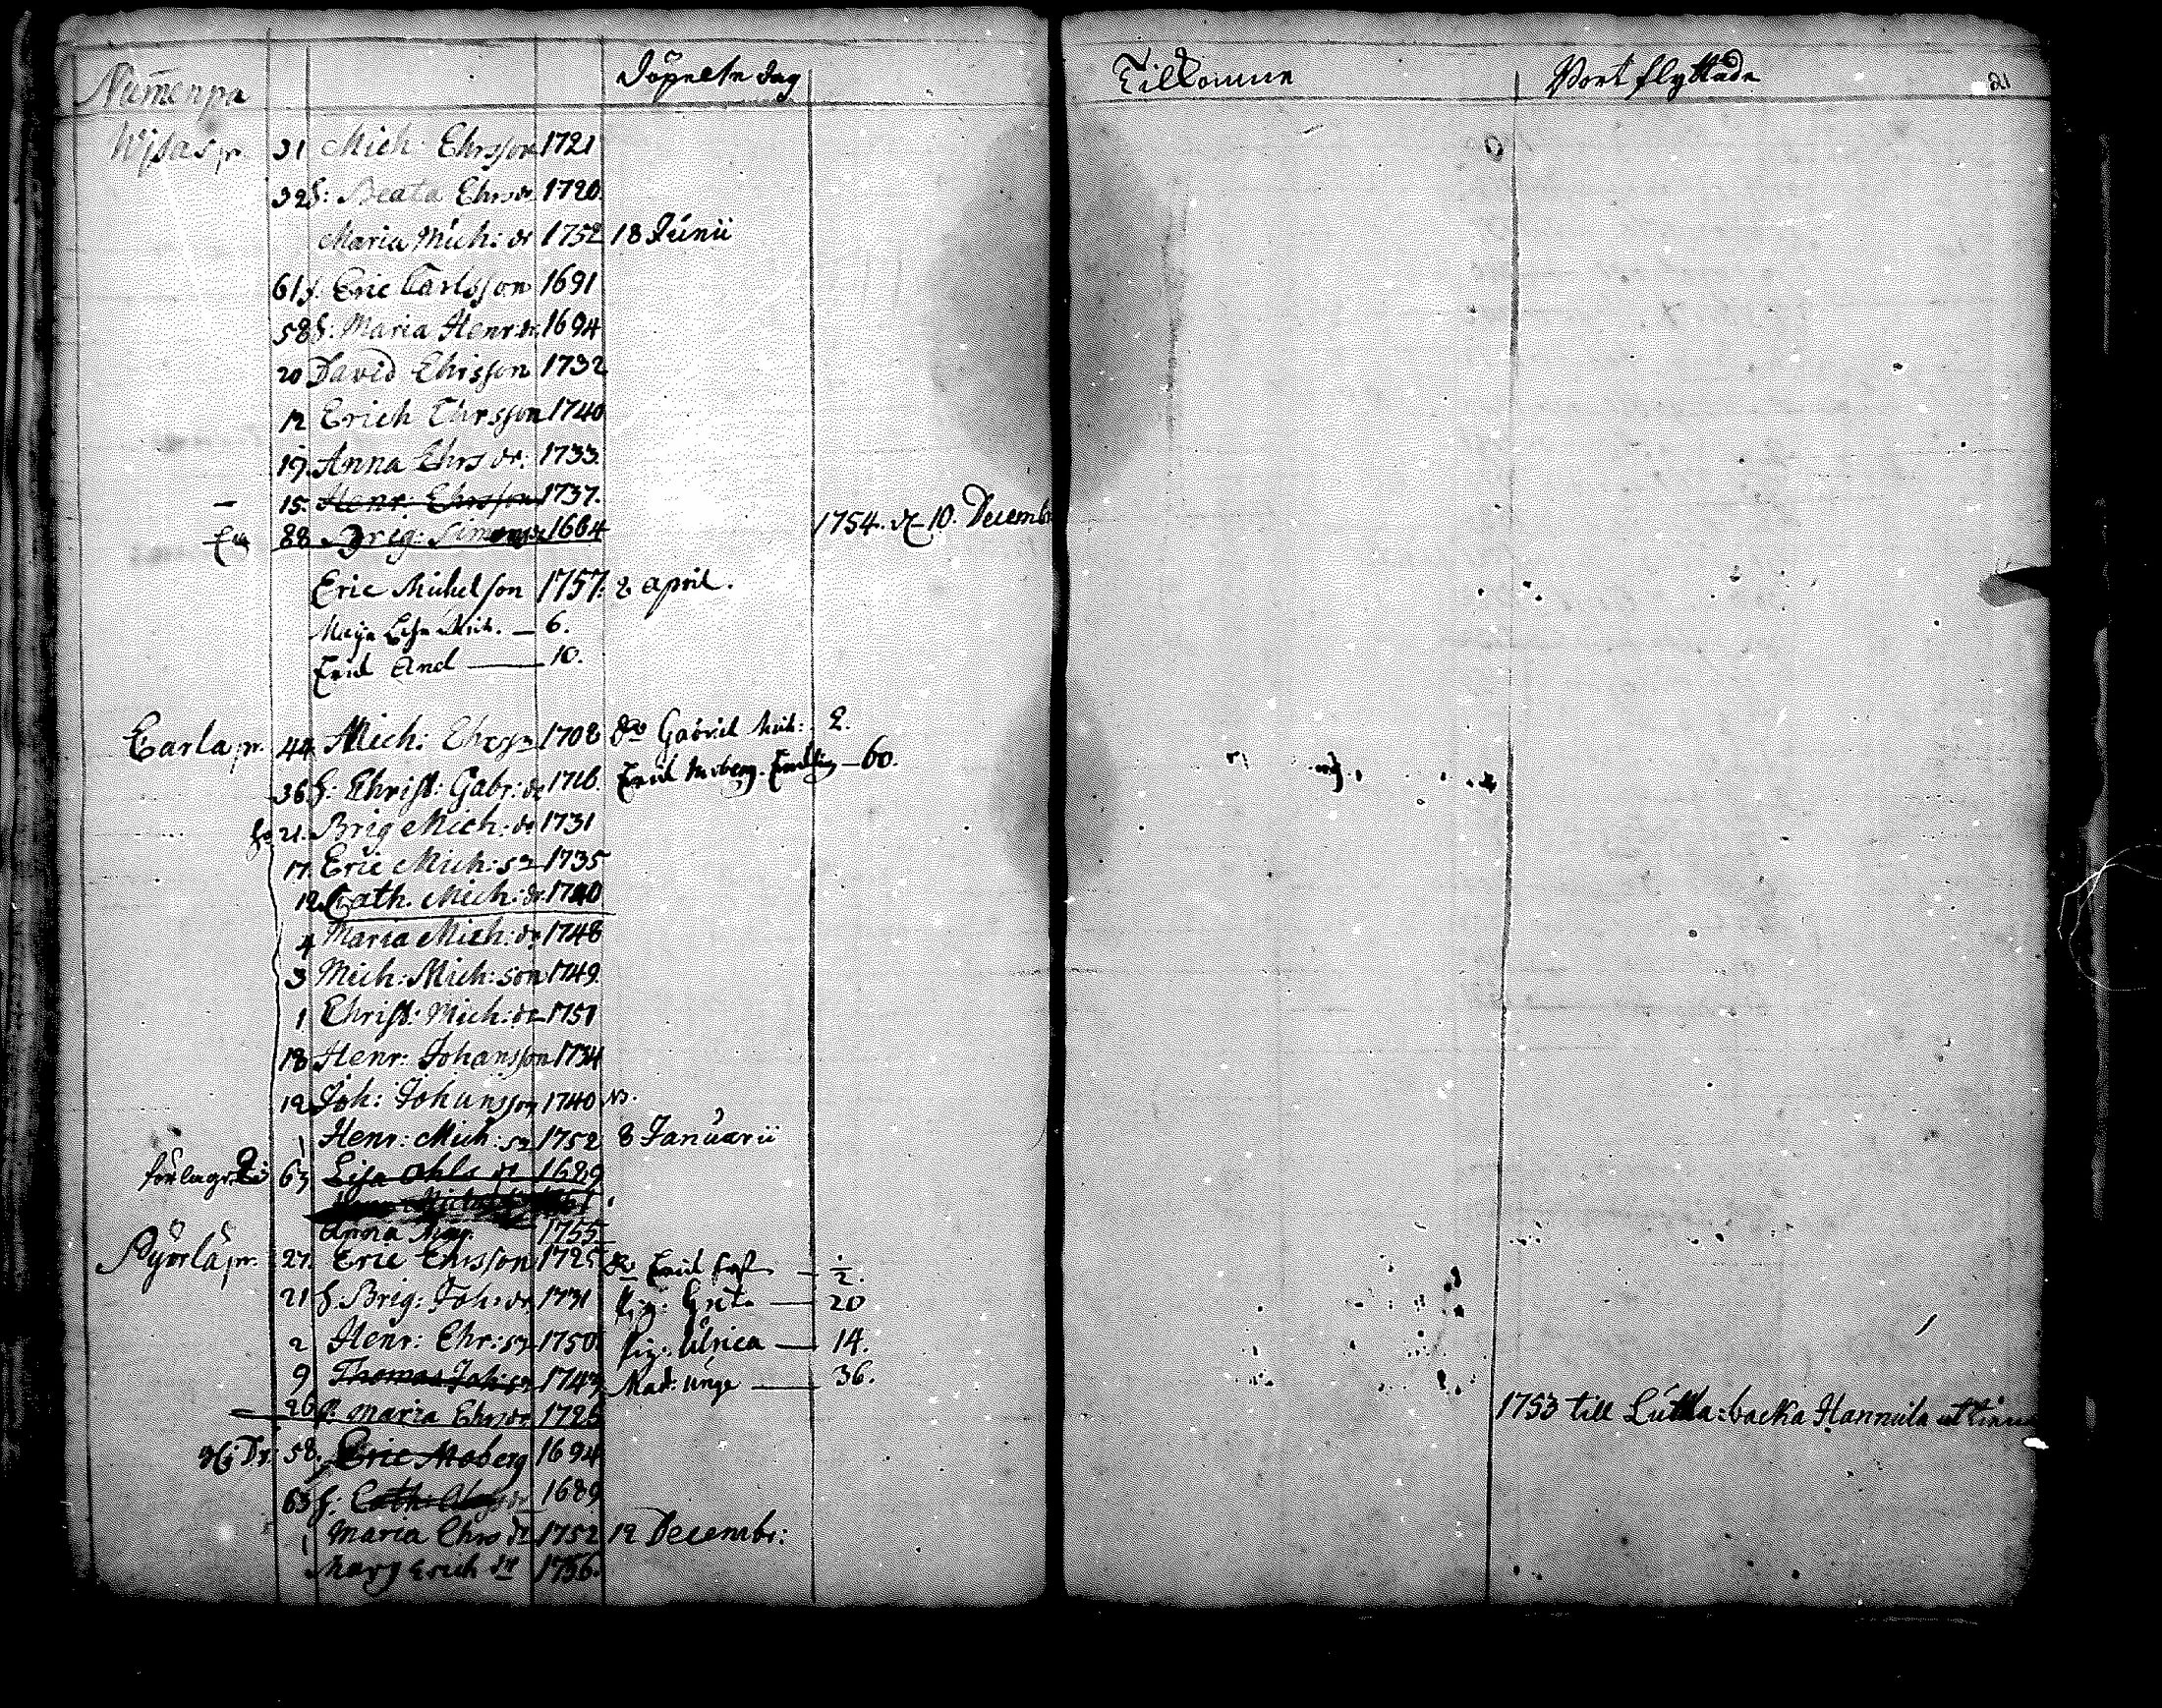 Numenpä Döpelse dag Tilkomne Bort flyttade 21
Wisas pr. 31 Mich: Ehrsson 1721
32 h: Beata Ehrs dr 1720.
Maria Mich: dr 1752 18 Junii
61 f. Eric Carlsson 1691
58 h: Maria Henr: dr 1694
20 David Ehrsson 1732
12 Erich Ehrsson 1740
19. Anna Ehrs dr. 1733.
15. Henr: Ehrsson 1737.
88 Brig: Simons dr 1664 1754. d. 10. Decemb
Eric Michelson 1757. 2 april.
Maja Lisa Mich. — 6.
Erid And — 10.
Carla pr. 44 Mich: Ehrss 1708 Gabriel Mich: 2.
36. h: Christ: Gabr: dr 1716. Moberg. — 60.
21. Brig Mich: dr 1731
17. Eric Mich: sn 1735
12. Cath. Mich: dr 1740
4 Maria Mich: dr 1748
3 Mich: Mich: son 1749.
1 Christ: Mich: dr 1751
18 Henr: Johansson 1734
12 Joh: Johansson 1740
1 Henr: Mich: sn 1752 8 Januarii
63 Lisa Ohls dr 1689
Anna 1755
Pyörlä pr. 27. Eric Ehrsson 1725
21 h. Brig: Joh: dr 1731 Pig: Greta — 20
2 Henr: Ehr: sn 1750. Pig: Ulrica — 14.
9 Thomas Joh: sn 1743 Mad: Unge — 36.
26 p. Maria Ehrs dr 1726 1753 till Luttla:backa Hannula
58. Eric Moberg 1694
63 h: Cath: 1689
1 Maria Ehrs dr 1752 12 Decembr:
Marg Erich dr 1756.